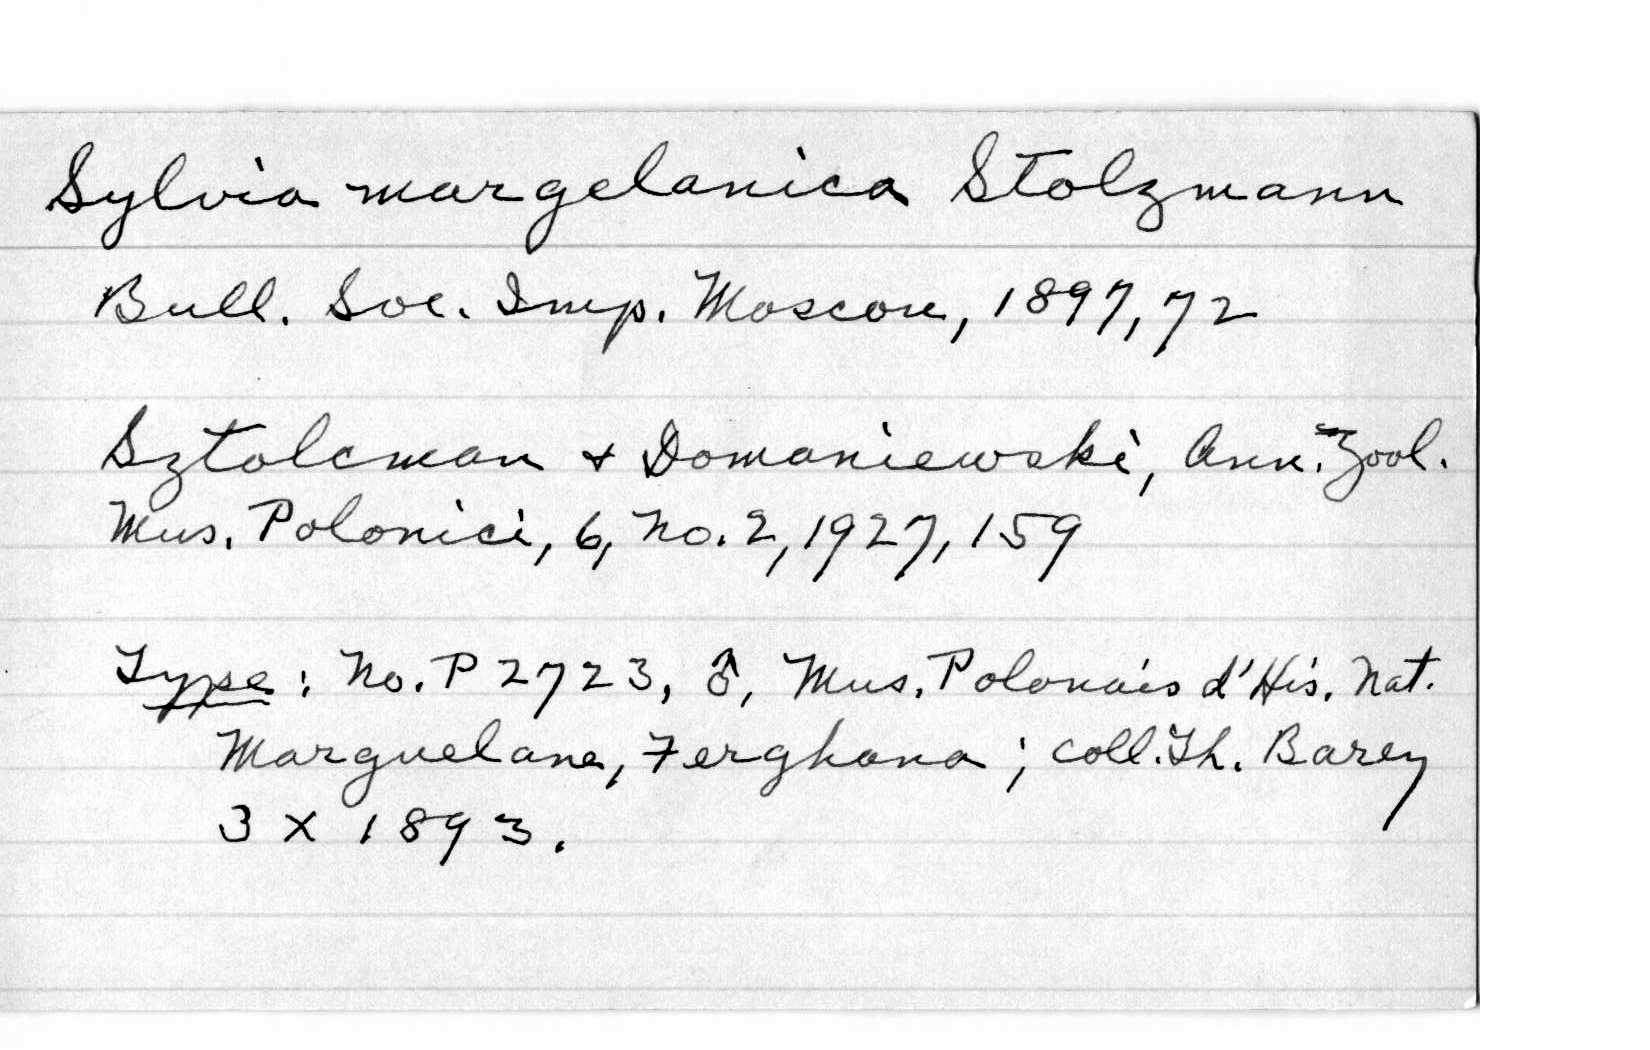 Sylvia margelanica Stolzmann
Bull. Soc. Imp. Moscou, 1897, 72
Sztolcman & Domaniewski, Ann. Zool.
Mus. Polonici, 6, No. 2, 1927, 159
Type: No. P 2723, ♂, Mus. Polonais d'His. Nat.
Marguelane, Ferghana; coll. Th. Barey
3 X 1893.